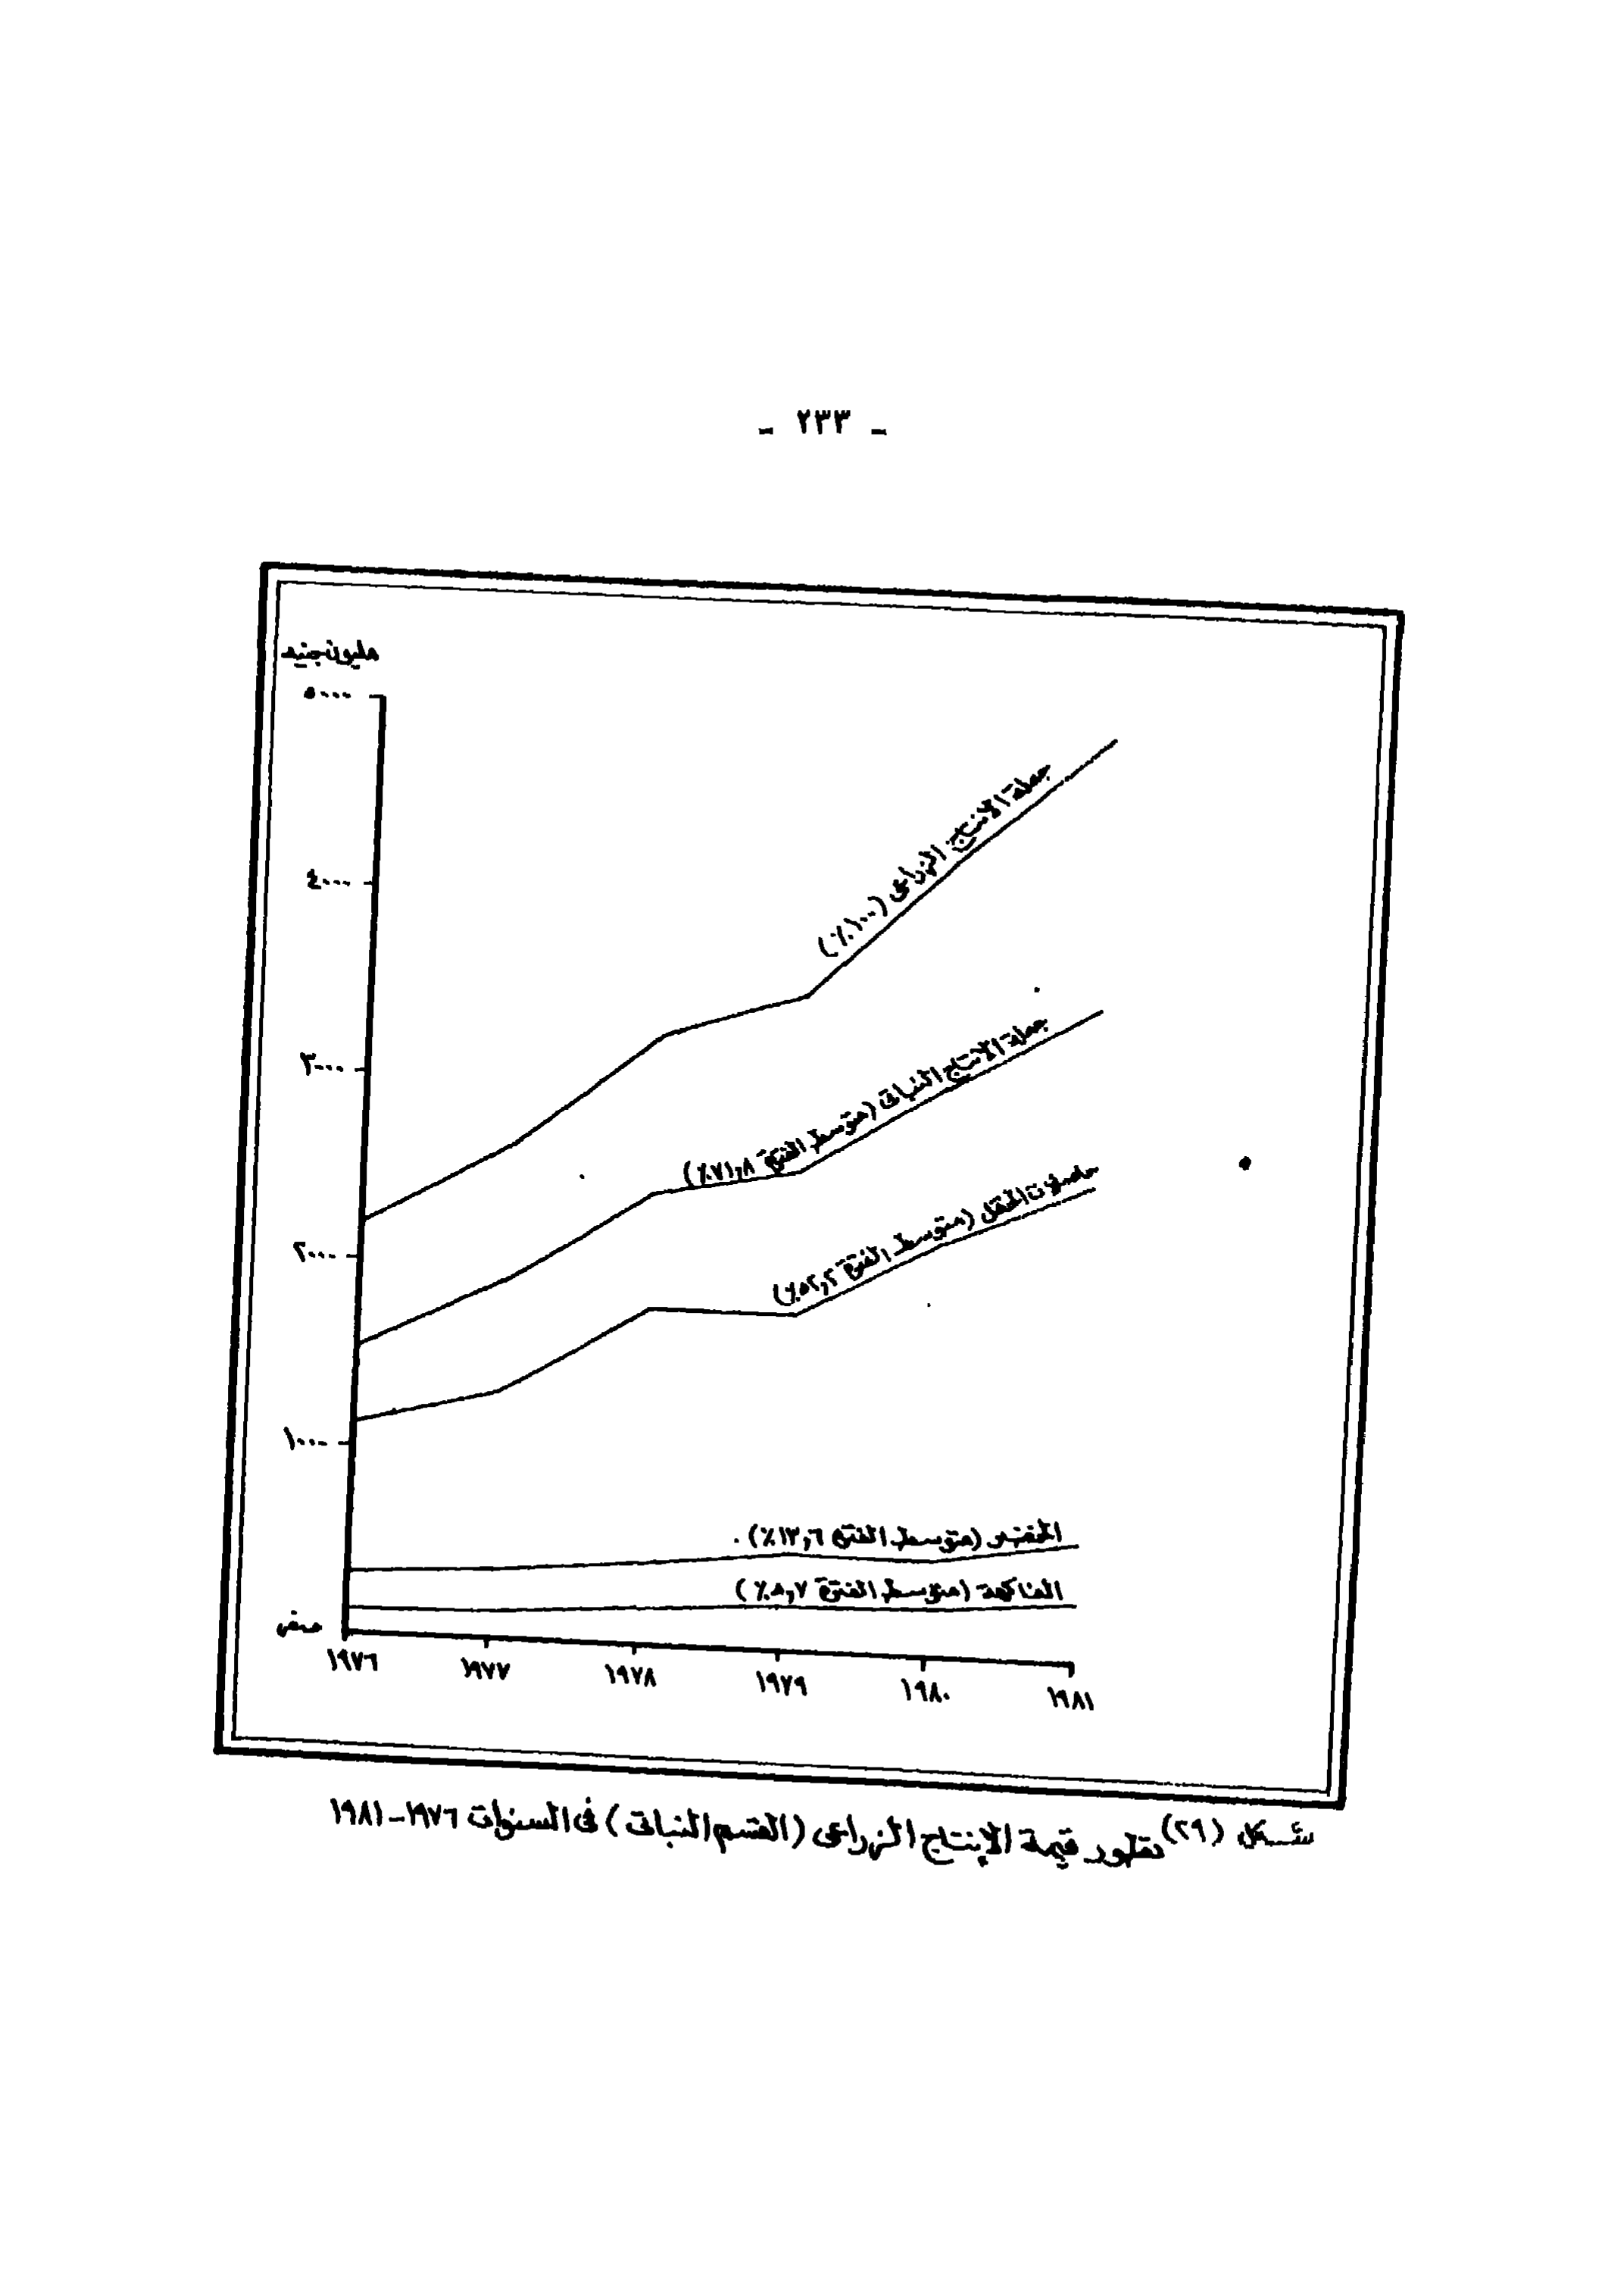 - ٢٣٣ -
مليون جنيه
٥٠٠٠
٤٠٠٠
٣٠٠٠
٢٠٠٠
١٠٠٠
صفر
جملة الانتاج الزراعى (١٠٠٪)
جملة الانتاج النباتى (متوسط الفترة ٧١٫٨٪)
حاصلات الحقل (متوسط الفترة ٥٢٫٢٪)
الخضر (متوسط الفترة ١٣٫٦٪)
الفاكهة (متوسط الفترة ٨٫٧٪)
١٩٧٦ ١٩٧٧ ١٩٧٨ ١٩٧٩ ١٩٨٠ ١٩٨١
شكل (٢٩) تطور قيمة الإنتاج الزراعى (القسم النباتى) فى السنوات ١٩٧٦-١٩٨١